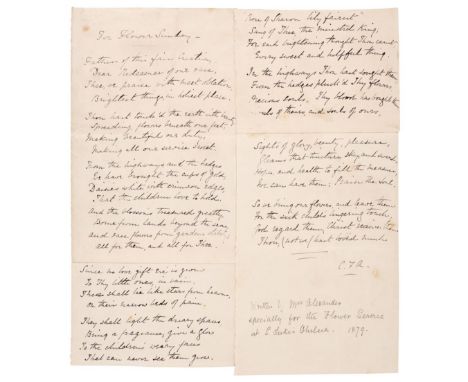 For Flower Sunday -
Father of this fair
Dear Redeemer of our race,
Thee, we praise with
Brightest things in dearest place.
Thou hast touch'd the earth with
Spreading flowers beneath our feet,
Making beautiful our duty,
Making all our service sweet.
From the highways and the hedges
We have brought the cups of gold,
Daisies white with crimson edges,
That the children love to hold.
And the blossoms treasured greatly
Borne from lands beyond the sea,
And rare flowers from gardens
all for them, and all for Thee.
Since no love gift e'er is given
To Thy little ones, in vain,
These shall lie like stars from heaven,
On their narrow beds of pain.
They shall light the dreary spaces
Bring a fragrance, give a glow
To the children's weary faces
That can never see them grow.
Rose of Sharon lily fairest
Sang of Thee, the minstrel King,
For each brightening thought Thou carest
Every sweet and helpful thing.
In the highways Thou hast sought them
From the hedges pluck'd Thy flowers
Precious souls, Thy blood has bought them
souls of theirs, and souls of ours.
Sights of glory, beauty, pleasure,
Gleams that
Hope, and health to fill the measure,
We can have them; Praise the Lord.
So we bring our flowers, and leave them
For the sick child's lingering touch
God regard them, Christ receive them
Thou
C.F.A.
Written by Mrs Alexander
specially for the Flower Service
at S. Lukes Chelsea. 1879.